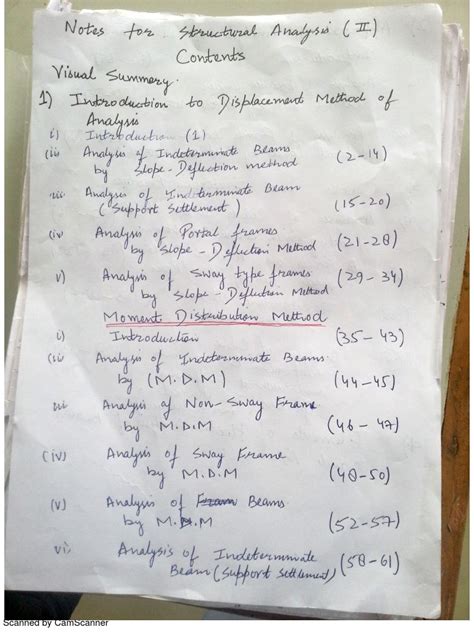 Notes for Structural Analysis (II)
Contents
Visual Summery.
1) Introduction to Displacement Method of
Analysis
i) Introduction (1)
(ii) Analysis of Indeterminate Beams
by Slope-Deflection method (2-14)
iii) Analysis of Indeterminate Beam
(Support Settlement) (15-20)
(iv) Analysis of Portal frames
by Slope-Deflection Method (21-28)
v) Analysis of Sway type frames
by Slope-Deflection Method (29-34)
Moment Distribution Method
i) Introduction (35-43)
(ii) Analysis of Indeterminate Beams
by (M.D.M) (44-45)
iii Analysis of Non-Sway Frame
by M.D.M (46-47)
(iv) Analysis of Sway Frame
by M.D.M (48-50)
(v) Analysis of Beams
by M.D.M (52-57)
vi) Analysis of Indeterminate
Beam (Support settlement) (58-61)
Scanned by CamScanner